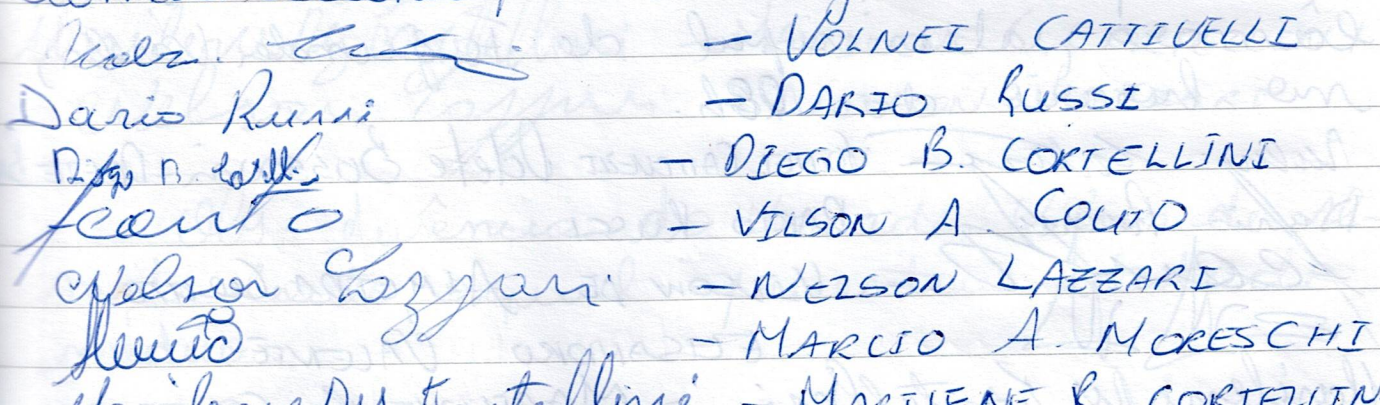 - VOLNEI CATTIVELLI
Dario Russi - DARIO RUSSI
Diego B. - DIEGO B. CORTELLINI
Couto - VILSON A. COUTO
Nelson Lazzari - NELSON LAZZARI
- MARCIO A. MORESCHI
- MARILENE R. CORTELLIN